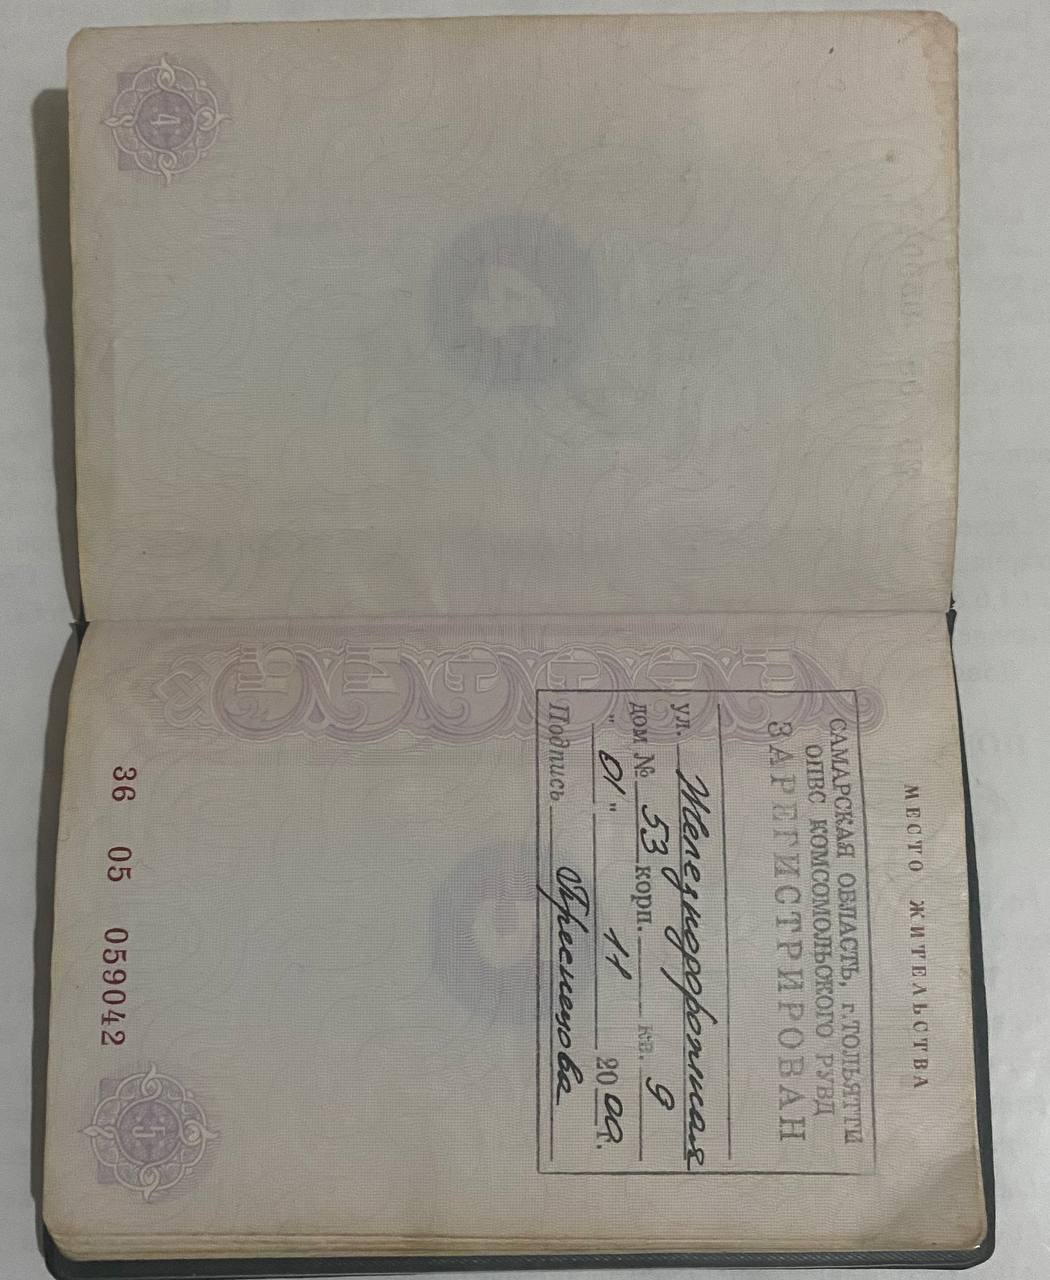 4
4
МЕСТО ЖИТЕЛЬСТВА
САМАРСКАЯ ОБЛАСТЬ, г.ТОЛЬЯТТИ
ОПВС КОМСОМОЛЬСКОГО РУВД
ЗАРЕГИСТРИРОВАН
ул. Железнодорожная
дом № 53 корп. кв. 9
"01" 11 2000г.
Подпись
РОССИЯ
36 05 059042
5